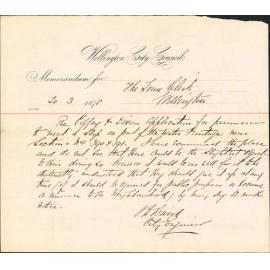 Wellington City Council
Memorandum for
The Town Clerk
20 3 1878
Wellington
Re Coffey & Dixons application for permission
to erect a Shed on part of the water frontage near
Sections Nos I have examined the place
and do not see that there could be the slightest
to their doing so. However it would be well for it to be
distinctly understood that they should give it up at any
time if it should be required for public purposes or become
a nuisance to the neighbourhood by being
notice.
City Engineer